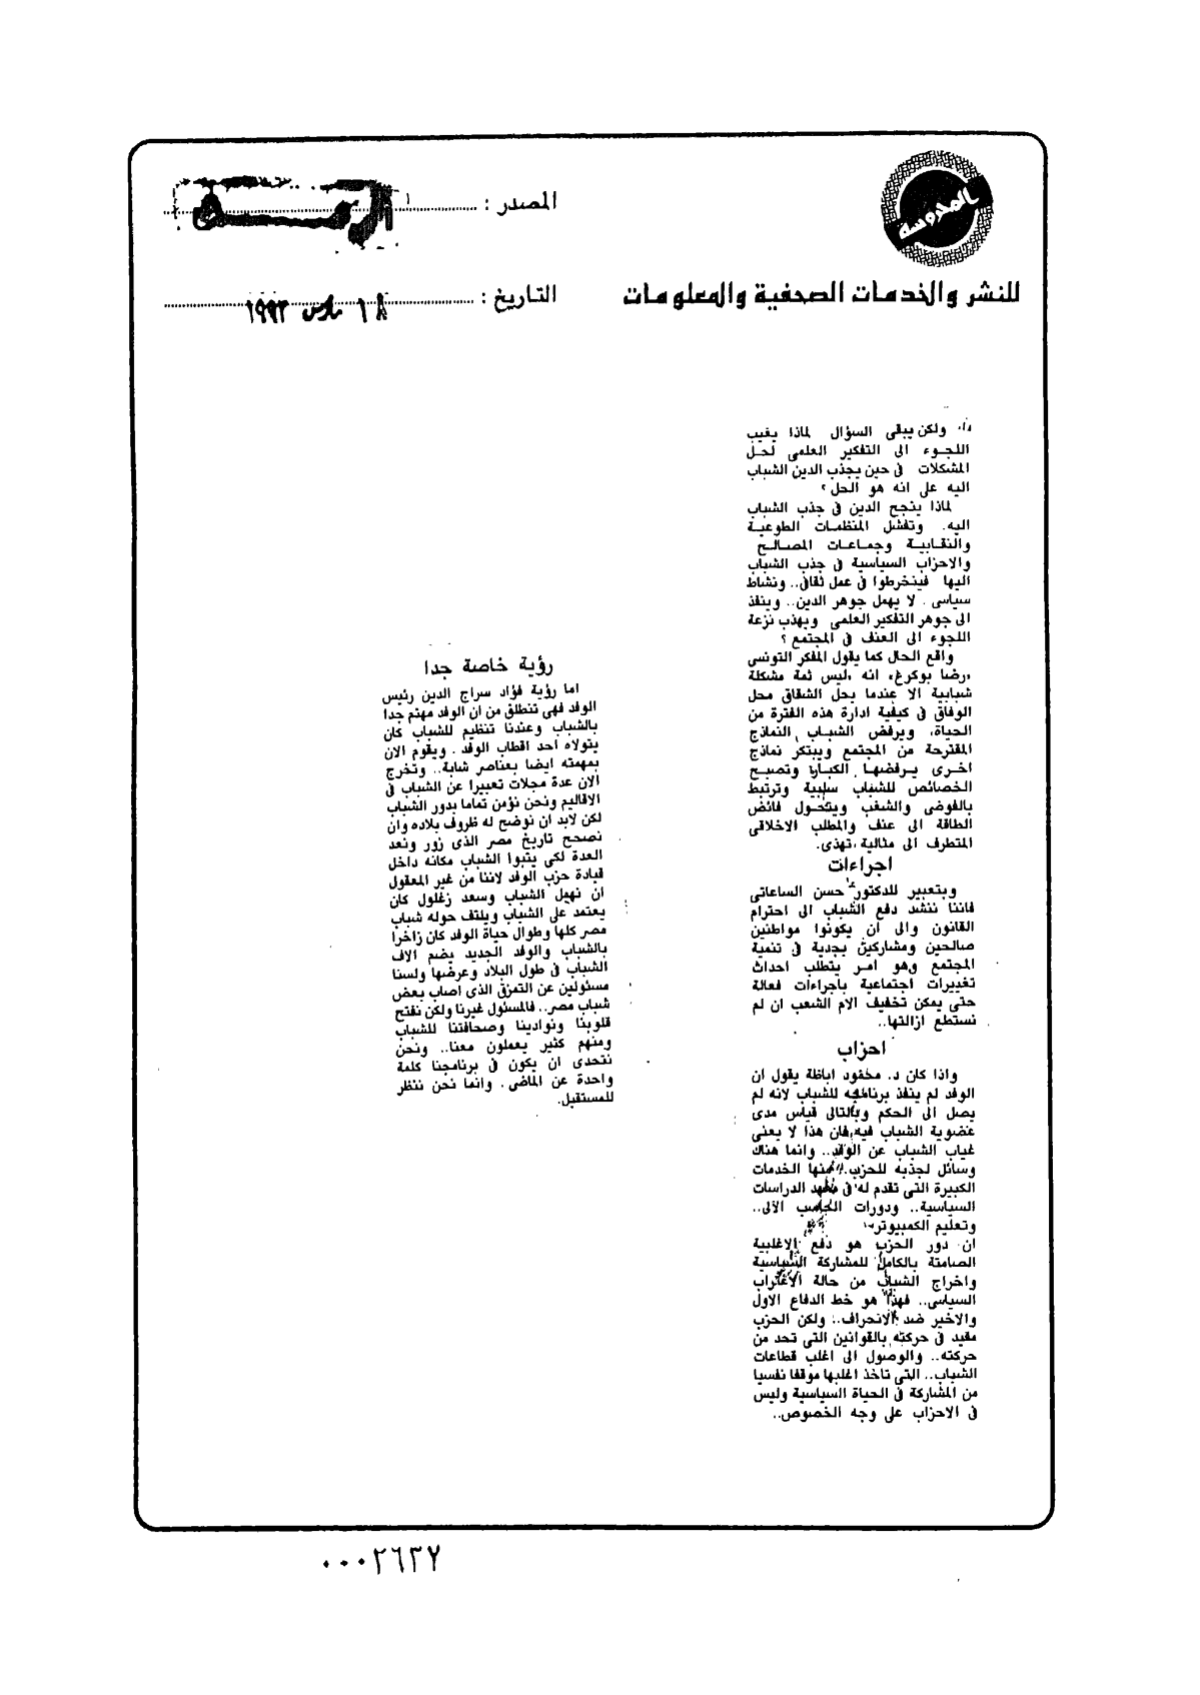 المحروسة
للنشر والخدمات الصحفية والمعلومات
المصدر :
التاريخ : ١٨ مارس ١٩٩٣
ولكن يبقى السؤال لماذا يغيب
اللجوء الى التفكير العلمى لحل
المشكلات فى حين يجذب الدين الشباب
اليه على انه هو الحل ؟
لماذا ينجح الدين فى جذب الشباب
اليه. وتفشل المنظمات الطوعية
والنقابية وجماعات المصالح
والاحزاب السياسية فى جذب الشباب
اليها فينخرطوا فى عمل ثقافى.. ونشاط
سياسى . لا يهمل جوهر الدين.. وينفذ
الى جوهر التفكير العلمى ويهذب نزعة
اللجوء الى العنف فى المجتمع ؟
واقع الحال كما يقول المفكر التونسى
«رضا بوكرع» انه «ليس ثمة مشكلة
شبابية الا عندما يحل الشقاق محل
الوفاق فى كيفية ادارة هذه الفترة من
الحياة، ويرفض الشباب النماذج
المقترحة من المجتمع ويبتكر نماذج
اخرى يرفضها الكبار» وتصبح
الخصائص للشباب سلبية وترتبط
بالفوضى والشغب ويتحول فائض
الطاقة الى عنف والمطلب الاخلاقى
المتطرف الى مثالية «تهذى.
اجراءات
وبتعبير للدكتور حسن الساعاتى
فاننا ننشد دفع الشباب الى احترام
القانون والى ان يكونوا مواطنين
صالحين ومشاركين بجدية فى تنمية
المجتمع وهو امر يتطلب احداث
تغييرات اجتماعية باجراءات فعالة
حتى يمكن تخفيف الام الشعب ان لم
نستطع ازالتها..
احزاب
واذا كان د. محمود اباظة يقول ان
الوفد لم ينفذ برنامجه للشباب لانه لم
يصل الى الحكم وبالتالى قياس مدى
عضوية الشباب فيه فان هذا لا يعنى
غياب الشباب عن الوفد.. وانما هناك
وسائل لجذبه للحزب. منها الخدمات
الكبيرة التى تقدم له فى معهد الدراسات
السياسية.. ودورات الحاسب الآلى..
وتعليم الكمبيوتر
ان دور الحزب هو دفع الاغلبية
الصامتة بالكامل للمشاركة السياسية
واخراج الشباب من حالة الاغتراب
السياسى.. فهذا هو خط الدفاع الاول
والاخير ضد الانحراف.. ولكن الحزب
مقيد فى حركته بالقوانين التى تحد من
حركته.. والوصول الى اغلب قطاعات
الشباب.. التى تاخذ اغلبها موقفا نفسيا
من المشاركة فى الحياة السياسية وليس
فى الاحزاب على وجه الخصوص..
رؤية خاصة جدا
اما رؤية فؤاد سراج الدين رئيس
الوفد فهى تنطلق من ان الوفد مهتم جدا
بالشباب وعندنا تنظيم للشباب كان
يتولاه احد اقطاب الوفد . ويقوم الان
بمهمته ايضا بعناصر شابة.. وتخرج
الان عدة مجلات تعبيرا عن الشباب فى
الاقاليم ونحن نؤمن تماما بدور الشباب
لكن لابد ان نوضح له ظروف بلاده وان
نصحح تاريخ مصر الذى زور ونعد
العدة لكى يتبوا الشباب مكانه داخل
قيادة حزب الوفد لاننا من غير المعقول
ان نهمل الشباب وسعد زغلول كان
يعتمد على الشباب ويلتف حوله شباب
مصر كلها وطوال حياة الوفد كان زاخرا
بالشباب والوفد الجديد يضم الاف
الشباب فى طول البلاد وعرضها ولسنا
مسئولين عن التمزق الذى اصاب بعض
شباب مصر.. فالمسئول غيرنا ولكن نفتح
قلوبنا ونوادينا وصحافتنا للشباب
ومنهم كثير يعملون معنا.. ونحن
نتحدى ان يكون فى برنامجنا كلمة
واحدة عن الماضى . وانما نحن ننظر
للمستقبل.
٠٠٠٢٦٣٧